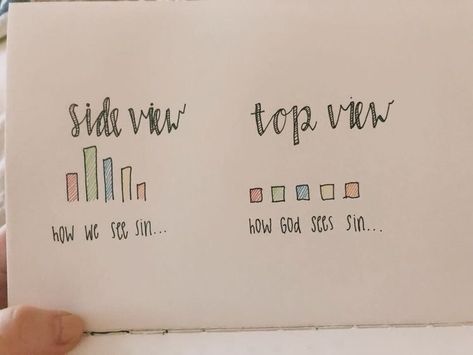 side view
how we see sin...
top view
how God sees sin...